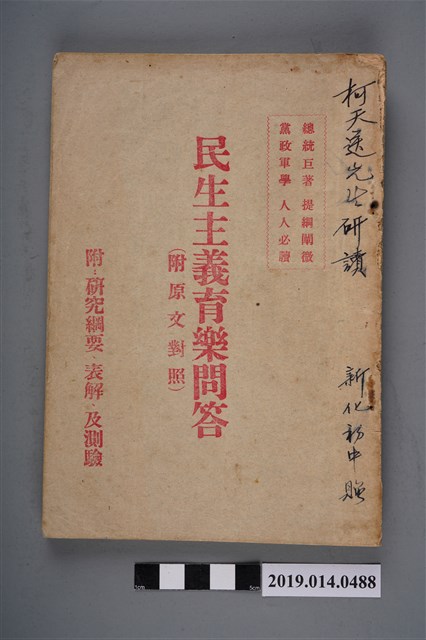 柯天送先生研讀
新化初中 贈
總統巨著 提綱闡微
黨政軍學 人人必讀
民生主義育樂問答
(附原文對照)
附：研究綱要、表解、及測驗
2019.014.0488